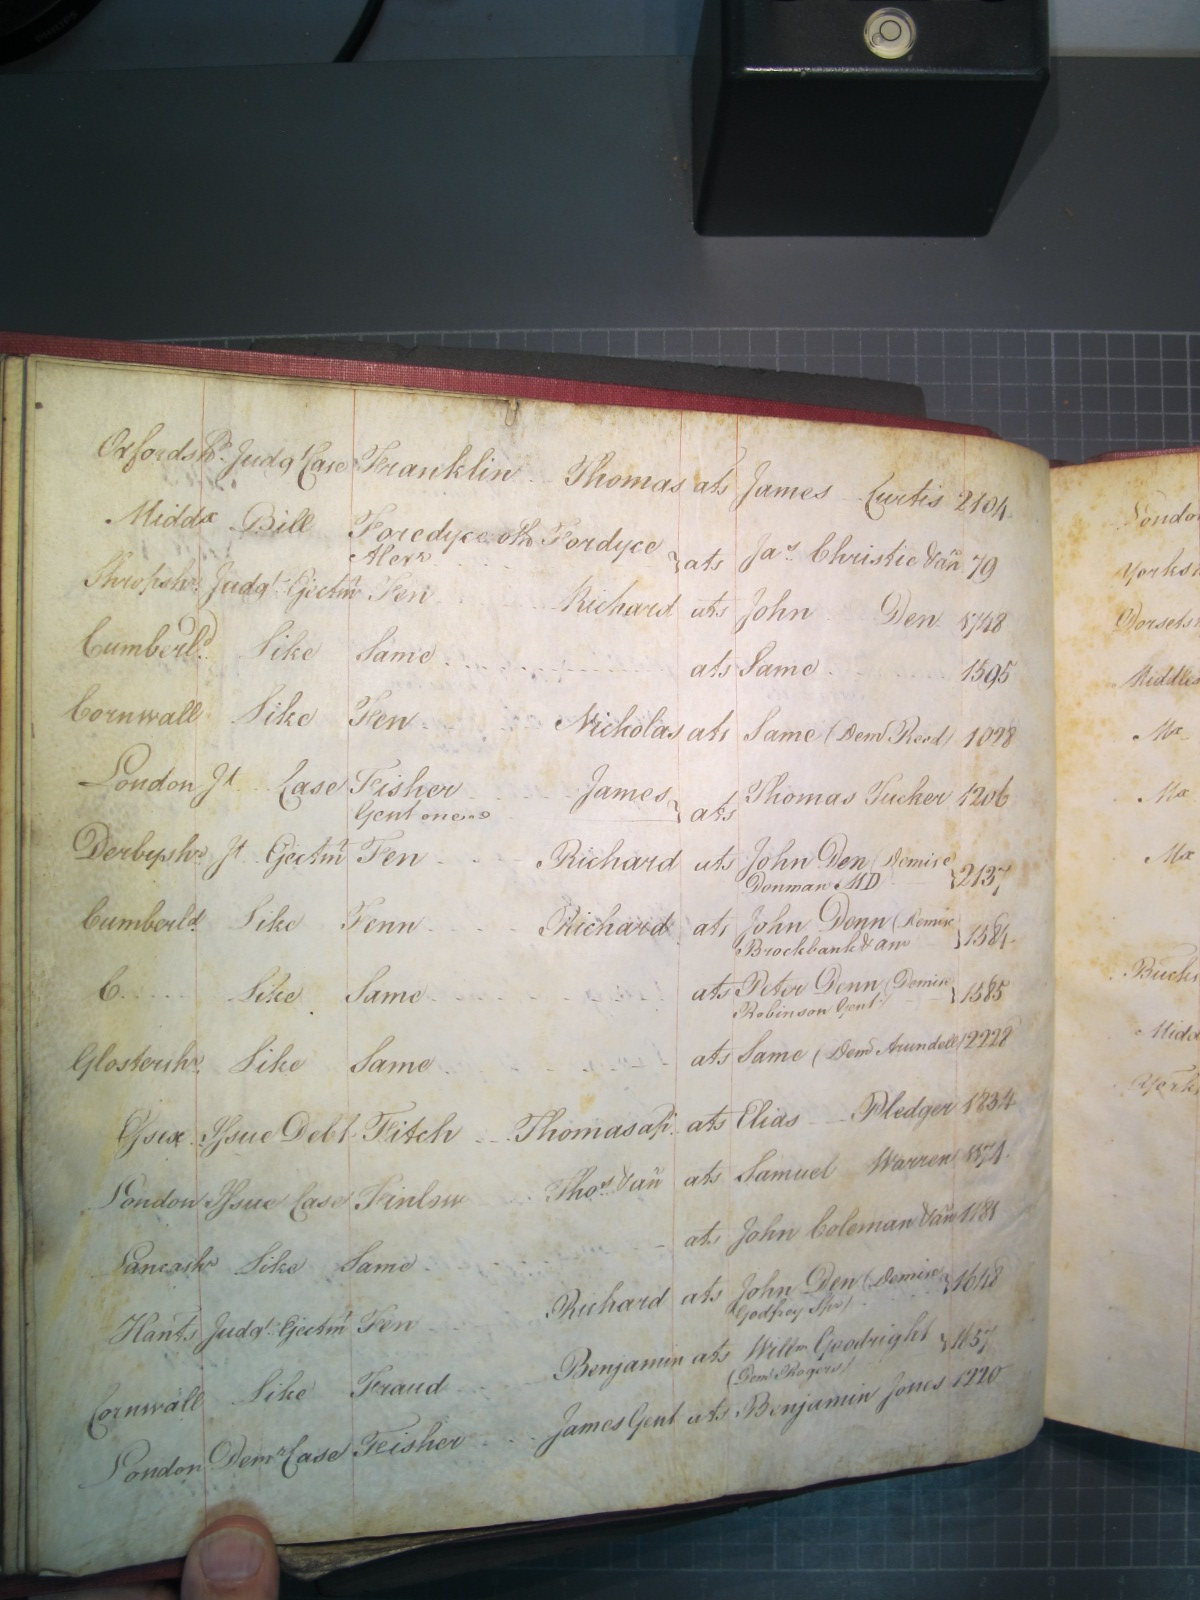 Oxfordshr. Judgt Case Franklin Thomas ats James Curtis 2104
Middx Bill Foredyce oths Fordyce ats Jas. Christie & an 79
Alexr
Shropshr Judgt Ejectmt Fen Richard ats John Den 1748
Cumberld. Like Same ats Same 1595
Cornwall Like Fen Nicholas ats Same (Demd Reed) 1098
London Jt Case Fisher James ats Thomas Tucker 1206
Gent one &c
Derbyshr Jt Ejectmt Fen Richard ats John Den (Demise 2137
Donman MD
Cumberld. Like Fenn Richard ats John Denn (Demise 1584
Brockbank & an
C. Like Same ats Peter Denn (Demise 1585
Robinson Gent)
Glostershr. Like Same ats Same (Demd Arundell) 2228
Essex Issue Debt Fitch Thomas ats Elias Pledger 1834
London Issue Case Finlow Thos & an ats Samuel Warren 1574
Lancashr Like Same ats John Coleman & an 1181
Hants Judgt Ejectmt Fen Richard ats John Den (Demise 1648
Godfrey
Cornwall Like Fraud Benjamin ats Willm Goodright 1157
(Demd Rogers)
London Demr Case Fisher James Gent ats Benjamin Jones 1220
London
Yorksh
Dorsets
Middles
Mx
Mx
Mx
Bucks
Midd
York